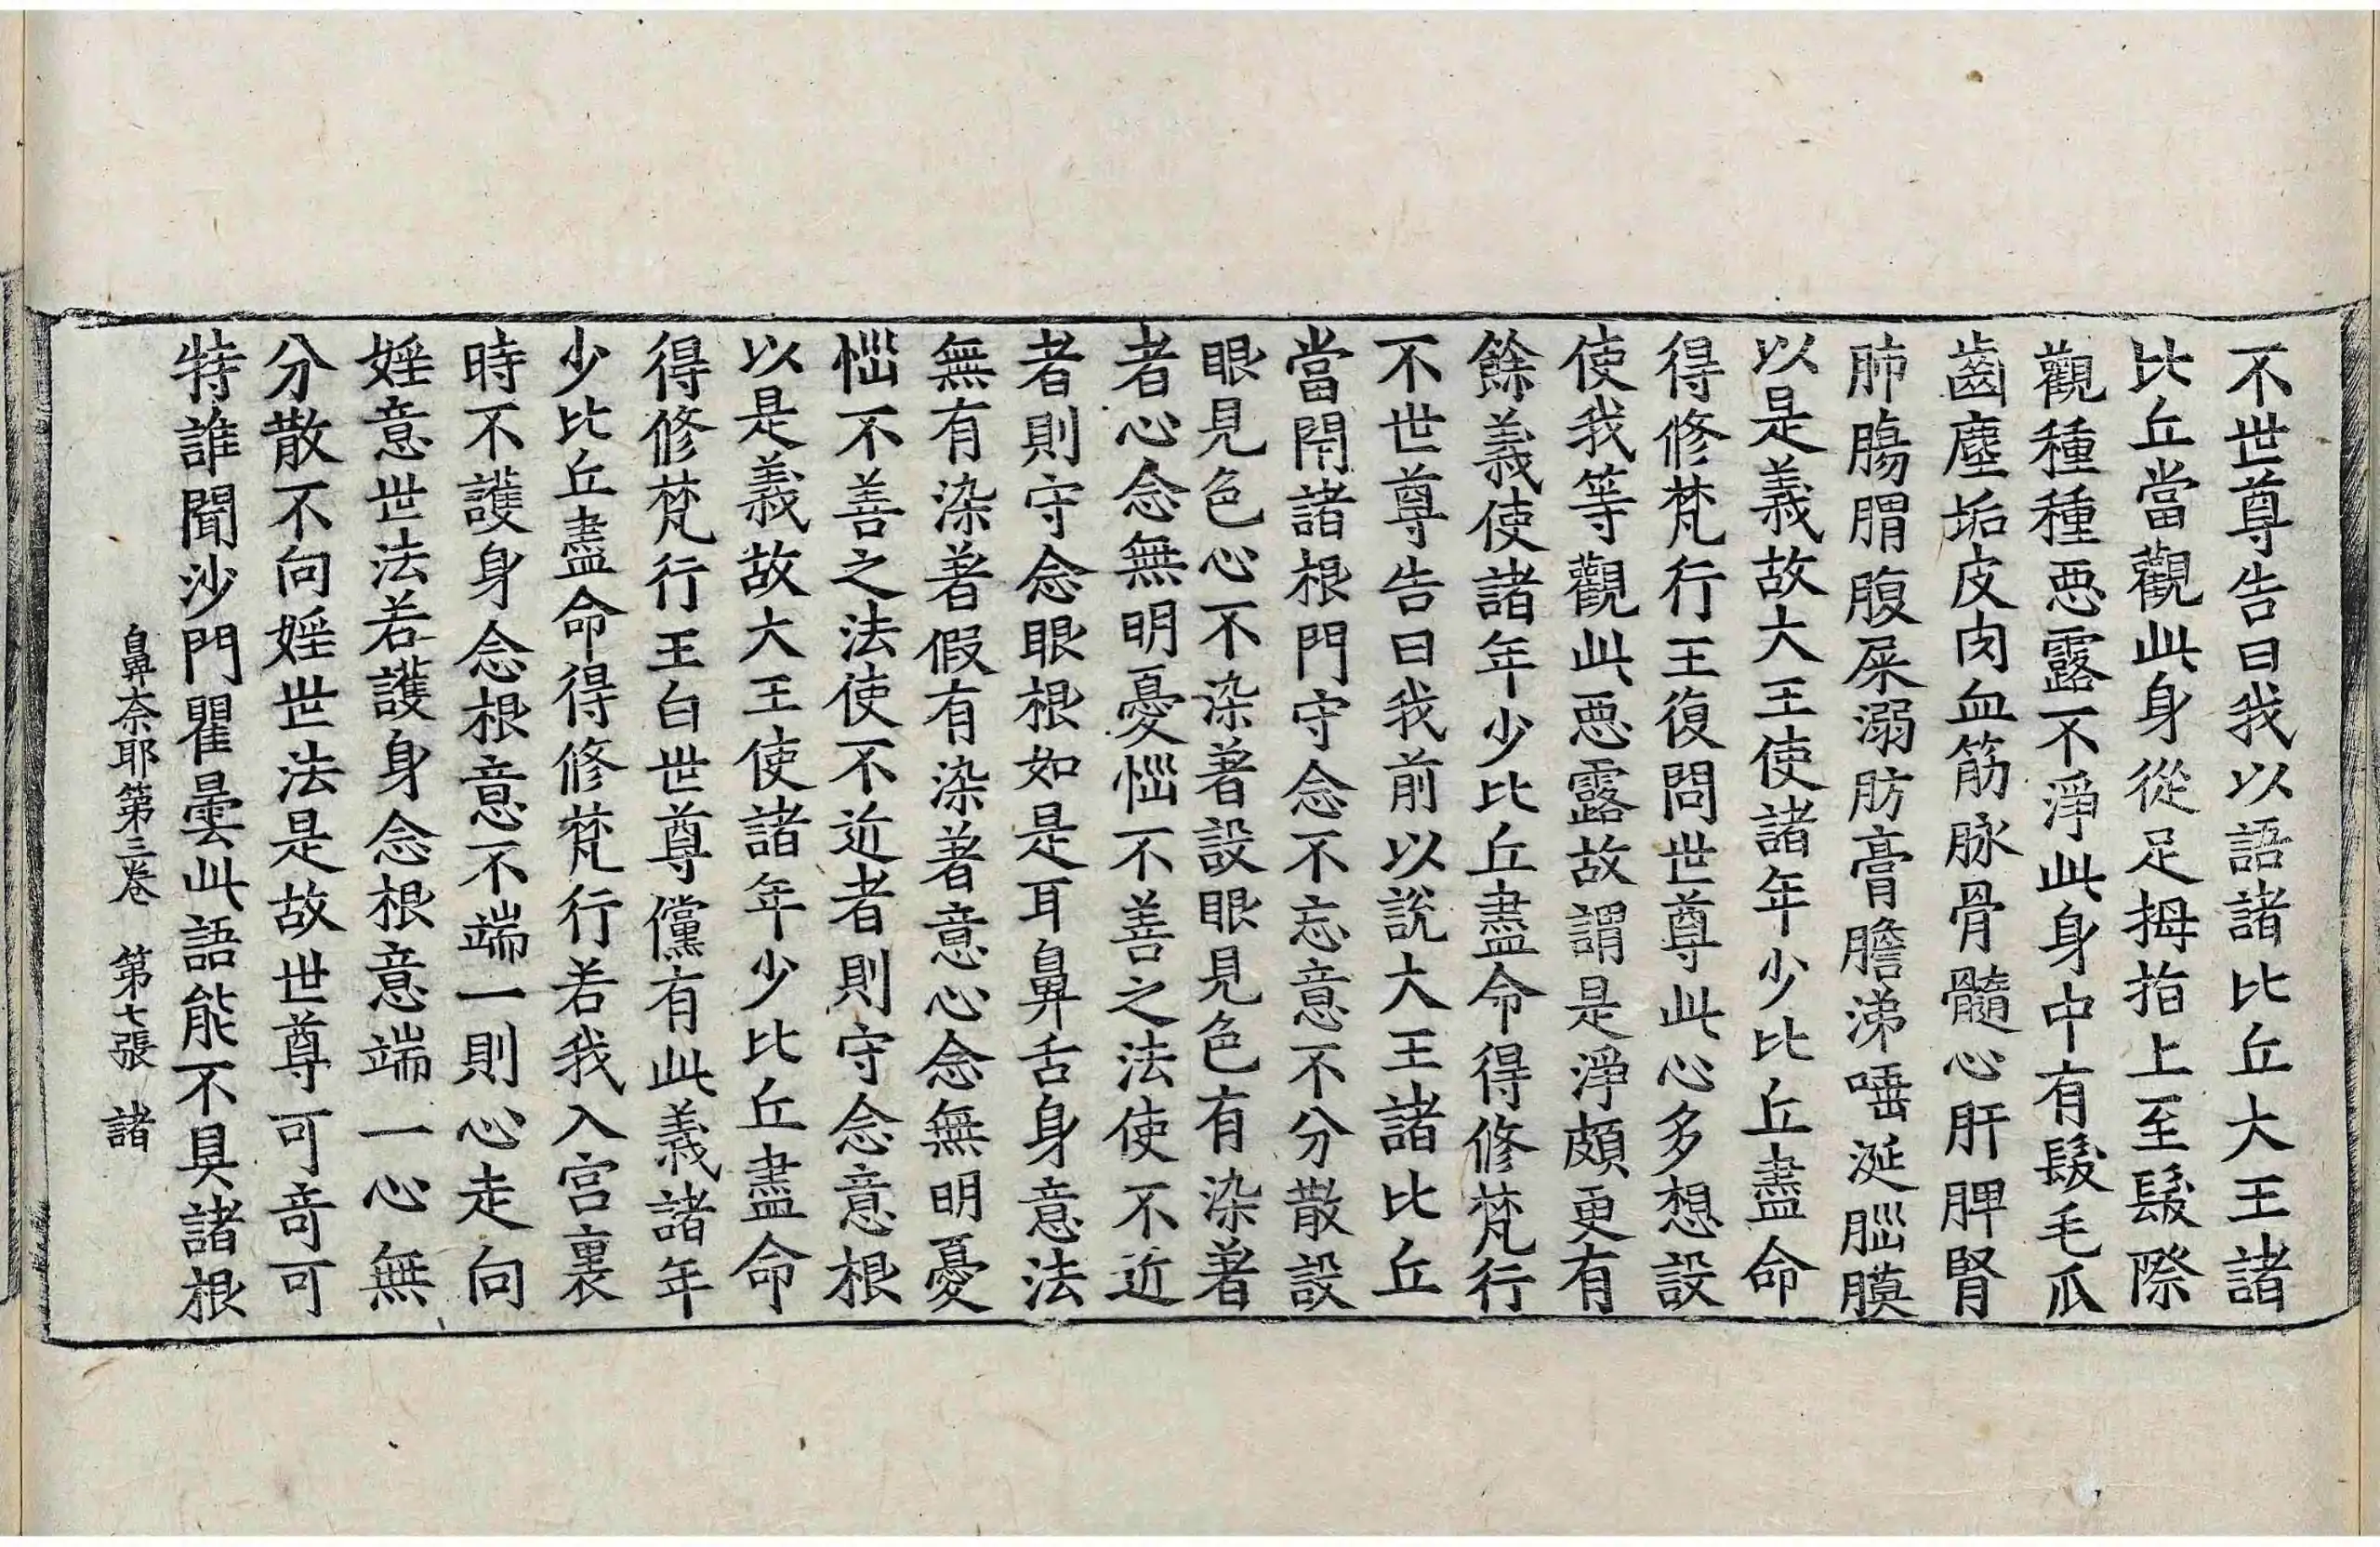 不世尊告曰我以語諸比丘大王諸
比丘當觀此身從足拇指上至髮際
觀種種惡露不淨此身中有髮毛爪
齒塵垢皮肉血筋脉骨髓心肝脾腎
肺腸胃腹屎溺肪膏膽涕唾涎腦膜
以是義故大王使諸年少比丘盡命
得修梵行王復問世尊此心多想設
使我等觀此惡露故謂是淨頗更有
餘義使諸年少比丘盡命得修梵行
不世尊告曰我前以說大王諸比丘
當閇諸根門守念不忘意不分散設
眼見色心不染著設眼見色有染著
者心念無明憂惱不善之法使不近
者則守念眼根如是耳鼻舌身意法
無有染著假有染著意心念無明憂
惱不善之法使不近者則守念意根
以是義故大王使諸年少比丘盡命
得修梵行王白世尊儻有此義諸年
少比丘盡命得修梵行若我入宮裏
時不護身念根意不端一則心走向
婬意世法若護身念根意端一心無
分散不向婬世法是故世尊可奇可
特誰聞沙門瞿曇此語能不具諸根
鼻奈耶第三卷　第七張　諸